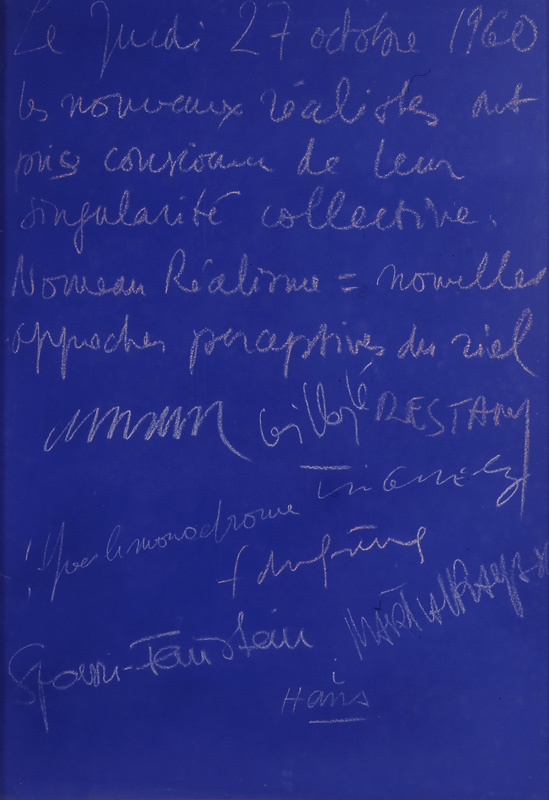 Le Jeudi 27 octobre 1960
les nouveaux réalistes ont
pris conscience de leur
singularité collective.
Nouveau Réalisme = nouvelles
approches perceptives du réel
Arman Villeglé RESTANY
Tinguely
Yves le monochrome
f dufrêne
Spoerri-Feinstein Martial Raysse
Hains